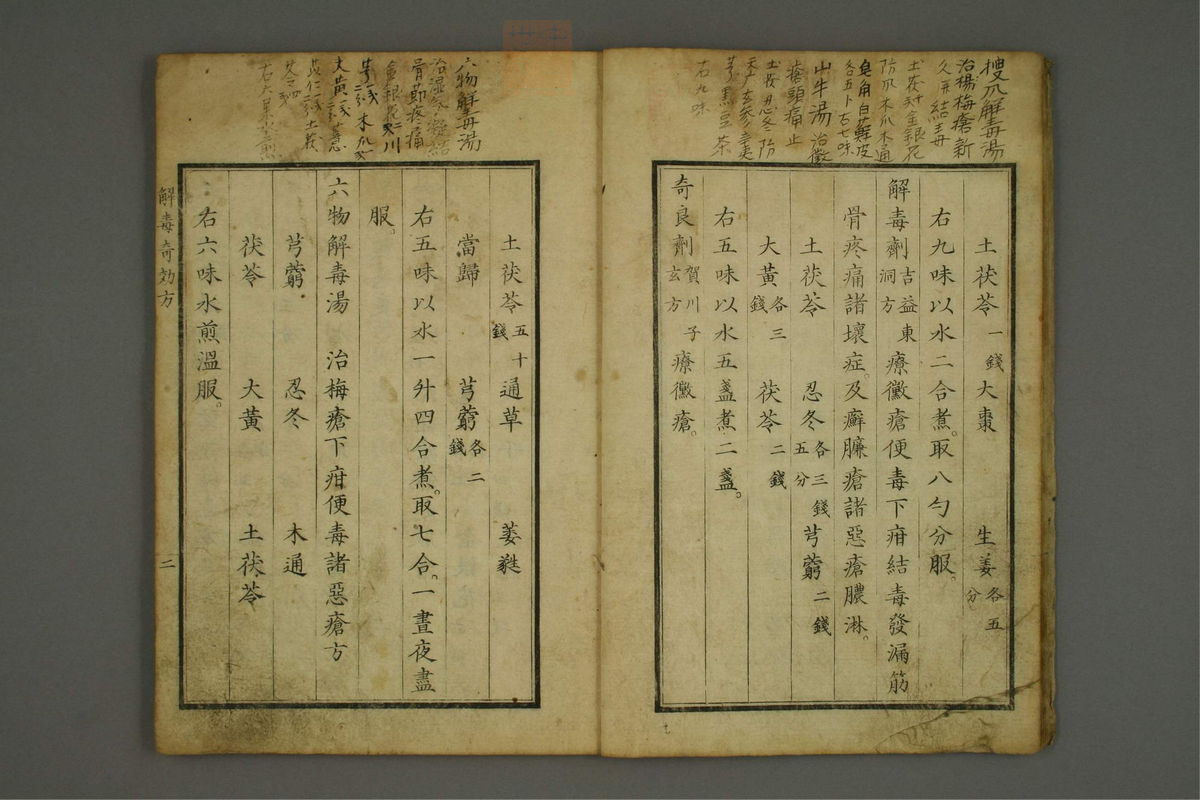 樱爪解毒湯
治楊梅瘡新
久并結毒
土茯 金銀花
防爪木爪木通
皂角白蘚皮
各五卜右七味
山牛湯 治黴
瘡頭痛止
土茯忍冬防
芎黒豆茶
右九味
土茯苓一錢 大棗 生姜各五分
右九味以水二合煮。取八勺分服。
解毒劑吉益東洞方 療黴瘡便毒下疳結毒發漏筋
骨疼痛諸壞症。及癬臁瘡諸惡瘡膿淋。
土茯苓 忍冬各三錢五分 芎藭二錢
大黃各三錢 茯苓二錢
右五味以水五盞煮二盞。
奇良劑賀川子玄方 療黴瘡。
六物解毒湯
治湿氣凝結
骨節疼痛
金銀花 川
芎 木爪
大黃 薏
苡仁 土茯
土茯苓五十錢 通草 萎蕤
當歸 芎藭各二錢
右五味以水一升四合煮。取七合。一晝夜盡
服。
六物解毒湯 治梅瘡下疳便毒諸惡瘡方
芎藭 忍冬 木通
茯苓 大黃 土茯苓
右六味水煎溫服。
解毒奇効方
二